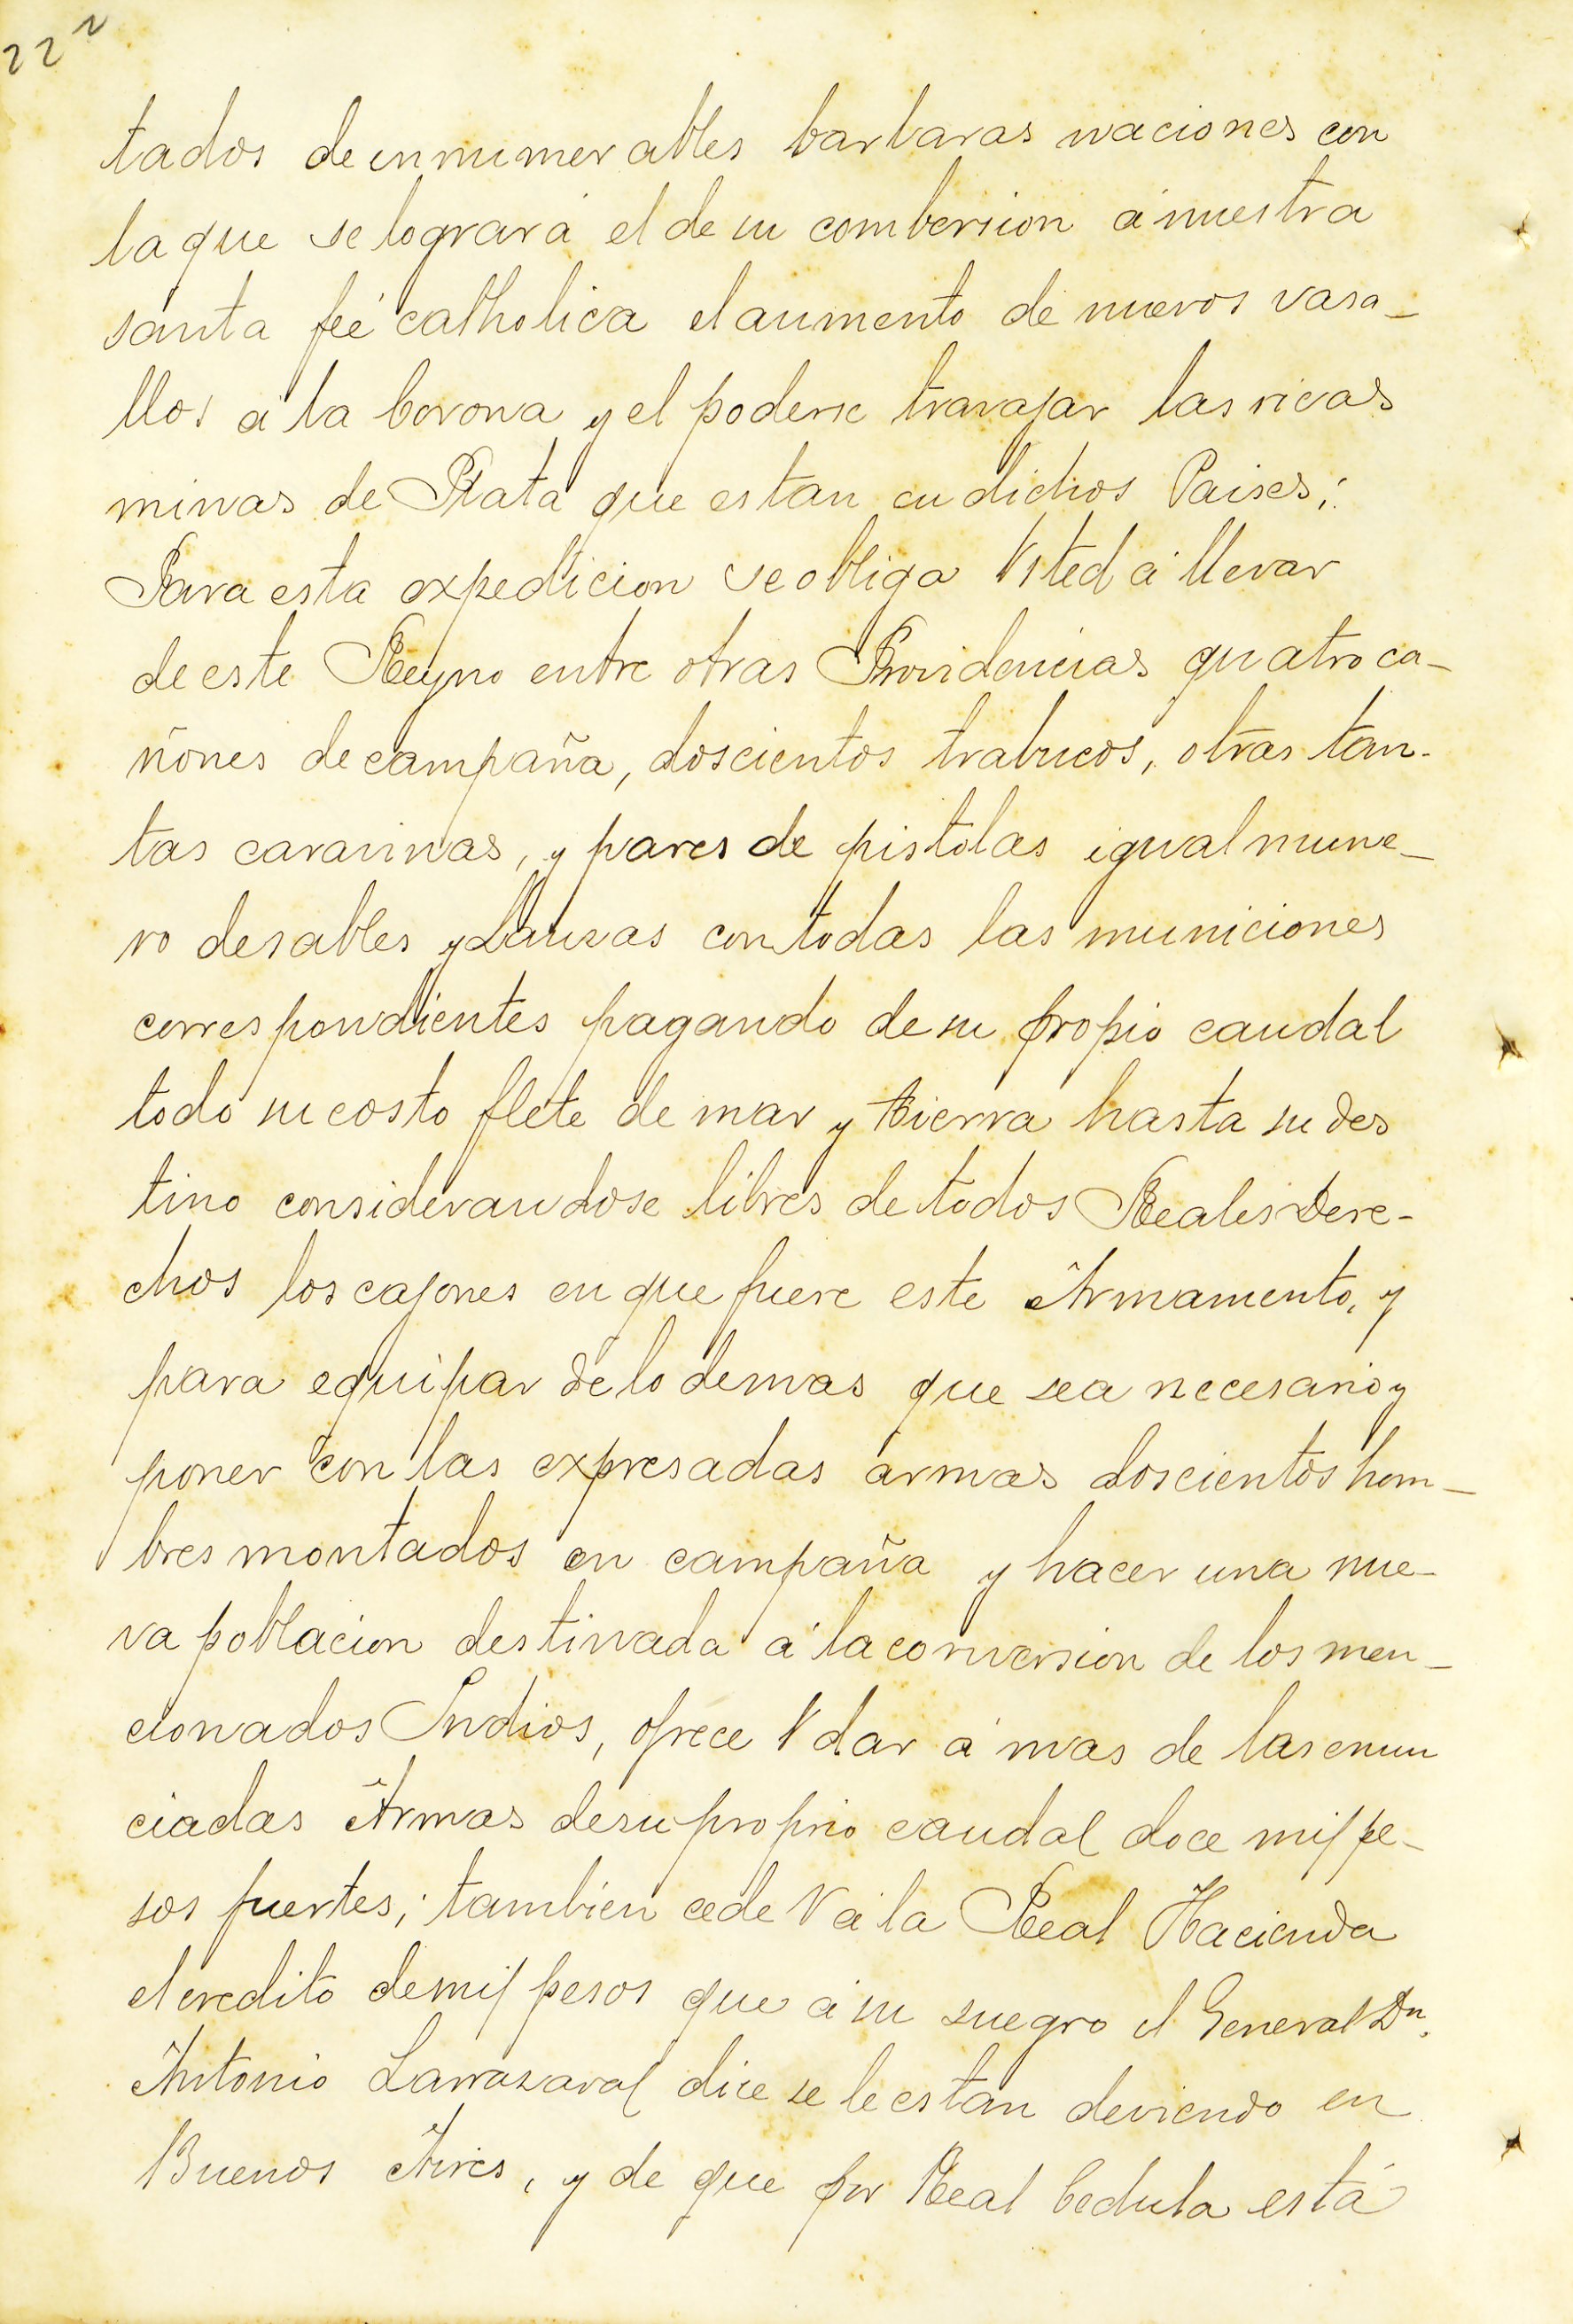 22 v
tados de innumerables barbaras naciones con
la que se lograrà el de su combersion à nuestra
santa feé catholica el aumento de nuevos vasa-
llos à la Corona y el poderse travajar las ricas
minas de Plata que estan en dichos Paises;
Para esta expedicion se obliga Usted à llevar
de este Reyno entre otras Providencias quatro ca-
ñones de campaña, doscientos trabucos, otras tan-
tas caravinas, y pares de pistolas igual nume-
ro de sables y Lanzas con todas las municiones
correspondientes pagando de su propio caudal
todo su costo flete de mar y tierra hasta su des
tino considerandose libres de todos Reales Dere-
chos los cajones en que fuere este Armamento, y
para equipar de lo demas que sea necesario y
poner con las expresadas armas doscientos hom-
bres montados en campaña y hacer una nue-
va poblacion destinada à la conversion de los men-
cionados Indios, ofrece V dar à mas de las enun
ciadas Armas de su proprio caudal doce mil pe-
sos fuertes; tambien cede V à la Real Hacienda
el credito de mil pesos que à su suegro el General Dn.
Antonio Larrazaval dice se le estan deviendo en
Buenos Aires, y de que por Real Cedula está